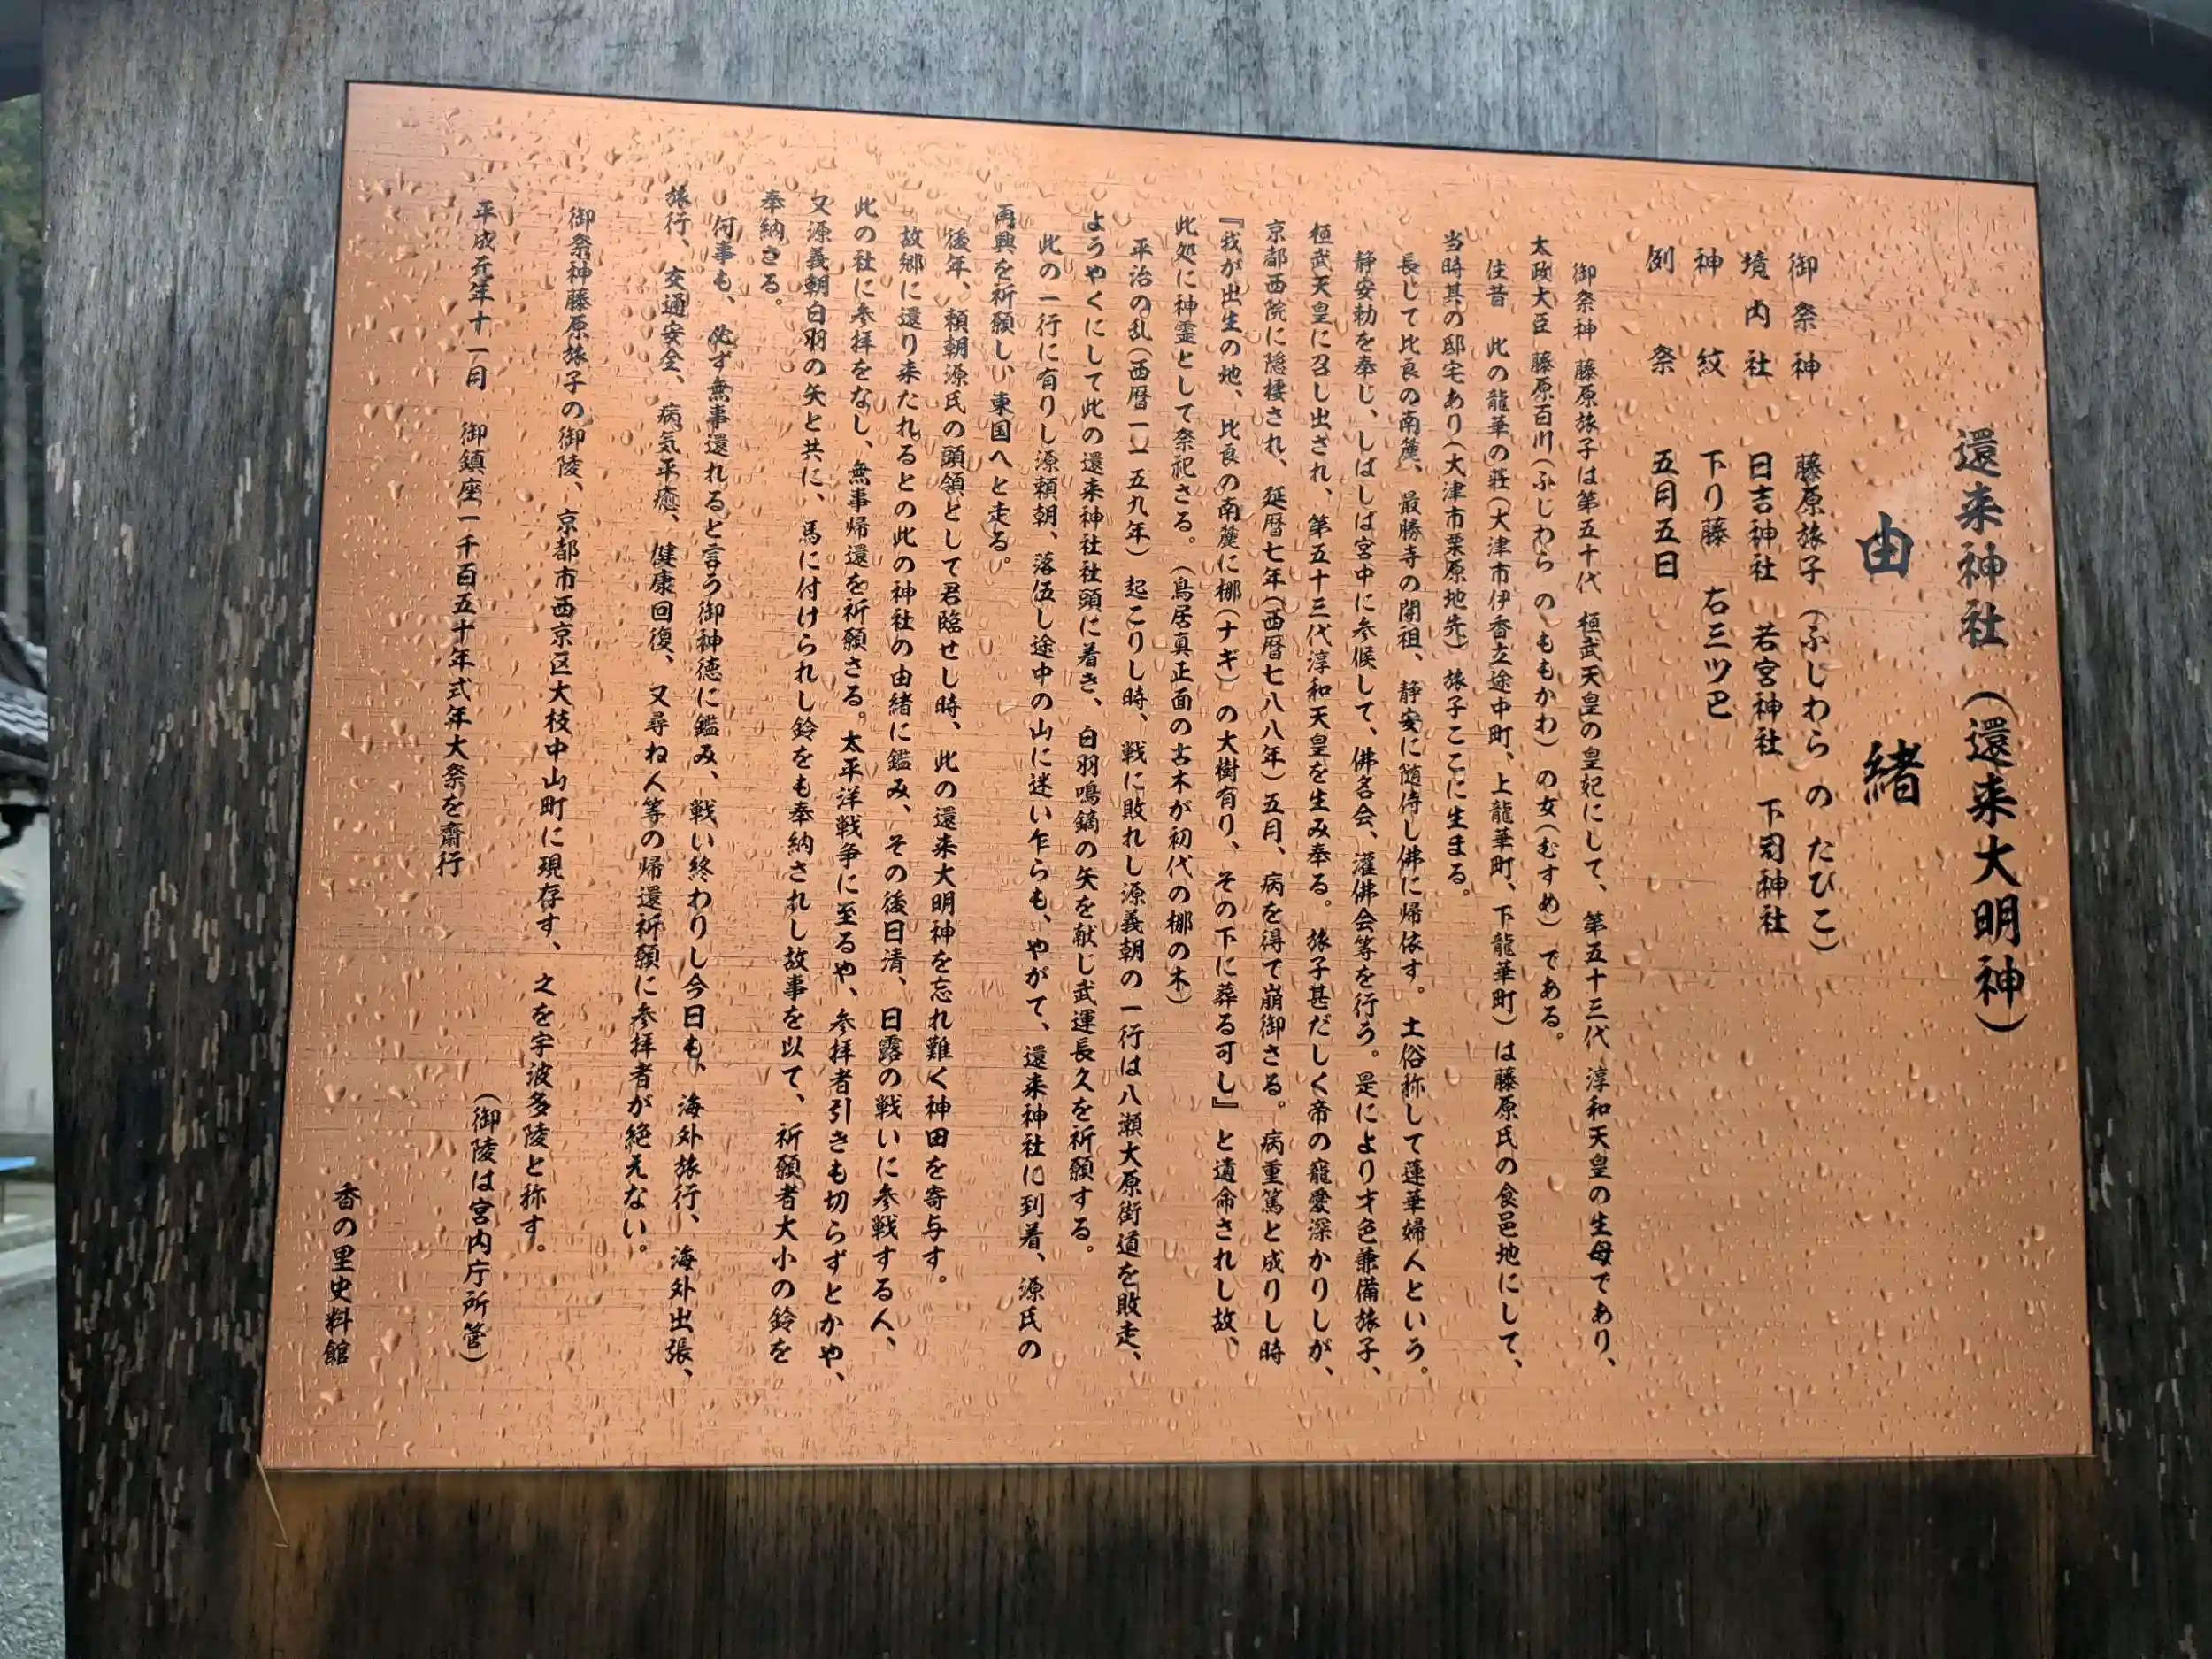 還来神社（還来大明神）
由緒
御祭神 藤原旅子（ふじわら の たびこ）
境内社 日吉神社 若宮神社 下司神社
神紋 下り藤 右三ツ巴
例祭 五月五日
御祭神 藤原旅子は第五十代 桓武天皇の皇妃にして、第五十三代 淳和天皇の生母であり、
太政大臣 藤原百川（ふじわら の ももかわ）の女（むすめ）である。
往昔 此の龍華の荘（大津市伊香立途中町、上龍華町、下龍華町）は藤原氏の食邑地にして、
当時其の邸宅あり（大津市栗原地先）旅子ここに生まる。
長して比良の南麓、最勝寺の開祖、静安に随侍し佛に帰依す。土俗称して蓮華婦人という。
静安勅を奉じ、しばしば宮中に参候して、佛名会、灌佛会等を行う。是により才色兼備旅子、
桓武天皇に召し出され、第五十三代淳和天皇を生み奉る。旅子甚だしく帝の寵愛深かりしが、
京都西院に隠棲され、延暦七年（西暦七八八年）五月、病を得て崩御さる。病重篤と成りし時
『我が出生の地、比良の南麓に梛（ナギ）の大樹有り、その下に葬る可し』と遺命されし故、
此処に神霊として祭祀さる。（鳥居真正面の古木が初代の梛の木）
平治の乱（西暦一一五九年）起こりし時、戦に敗れし源義朝の一行は八瀬大原街道を敗走、
ようやくにして此の還来神社社頭に着き、白羽鳴鏑の矢を献じ武運長久を祈願する。
此の一行に有りし源頼朝、落伍し途中の山に迷い乍らも、やがて、還来神社に到着、源氏の
再興を祈願し、東国へと走る。
後年、頼朝源氏の頭領として君臨せし時、此の還来大明神を忘れ難く神田を寄与す。
故郷に還り来たれるとの此の神社の由緒に鑑み、その後日清、日露の戦いに参戦する人、
此の社に参拝をなし、無事帰還を祈願さる。太平洋戦争に至るや、参拝者引きも切らずとかや、
又源義朝白羽の矢と共に、馬に付けられし鈴をも奉納されし故事を以て、祈願者大小の鈴を
奉納さる。
何事も、必ず無事還れると言う御神徳に鑑み、戦い終わりし今日も、海外旅行、海外出張、
旅行、交通安全、病気平癒、健康回復、又尋ね人等の帰還祈願に参拝者が絶えない。
御祭神藤原旅子の御陵、京都市西京区大枝中山町に現存す、之を宇波多陵と称す。
（御陵は宮内庁所管）
平成元年十一月 御鎮座一千百五十年式年大祭を齋行
香の里史料館